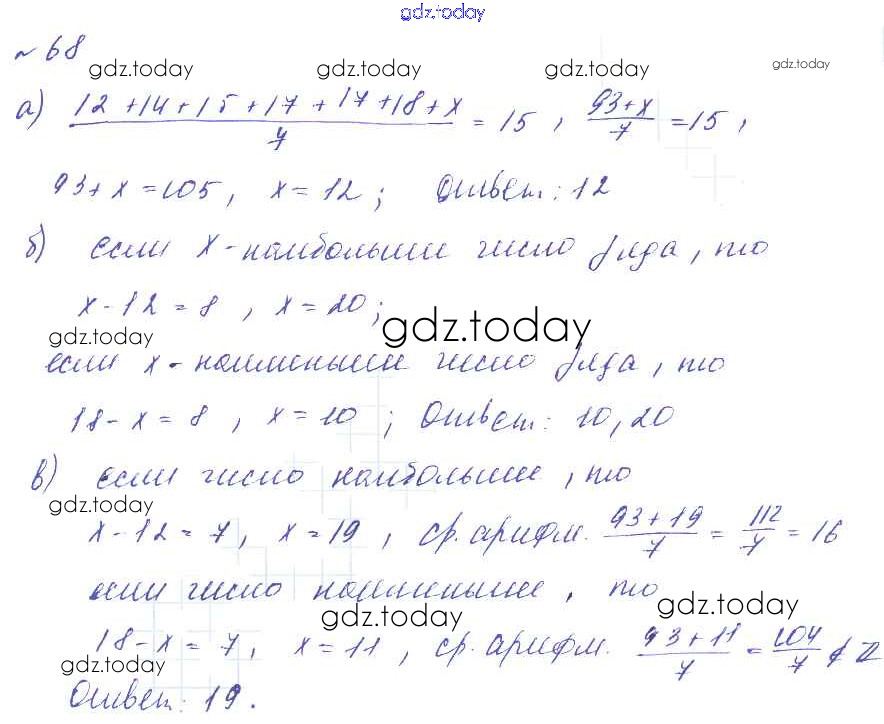 gdz.today
№ 68
gdz.today gdz.today gdz.today gdz.today
а) (12 + 14 + 15 + 17 + 17 + 18 + x)/7 = 15 , (93 + x)/7 = 15 ,
93 + x = 105 , x = 12 ; Ответ: 12
б) если x - наибольшее число ряда, то
x - 12 = 8 , x = 20 ;
gdz.today gdz.today
если x - наименьшее число ряда, то
18 - x = 8 , x = 10 ; Ответ: 10, 20
в) если число наибольшее, то
gdz.today
x - 12 = 7 , x = 19 , ср. арифм. (93 + 19)/7 = 112/7 = 16
если число наименьшее, то
gdz.today gdz.today
18 - x = 7 , x = 11 , ср. арифм. (93 + 11)/7 = 104/7 ∉ Z
gdz.today
Ответ: 19.